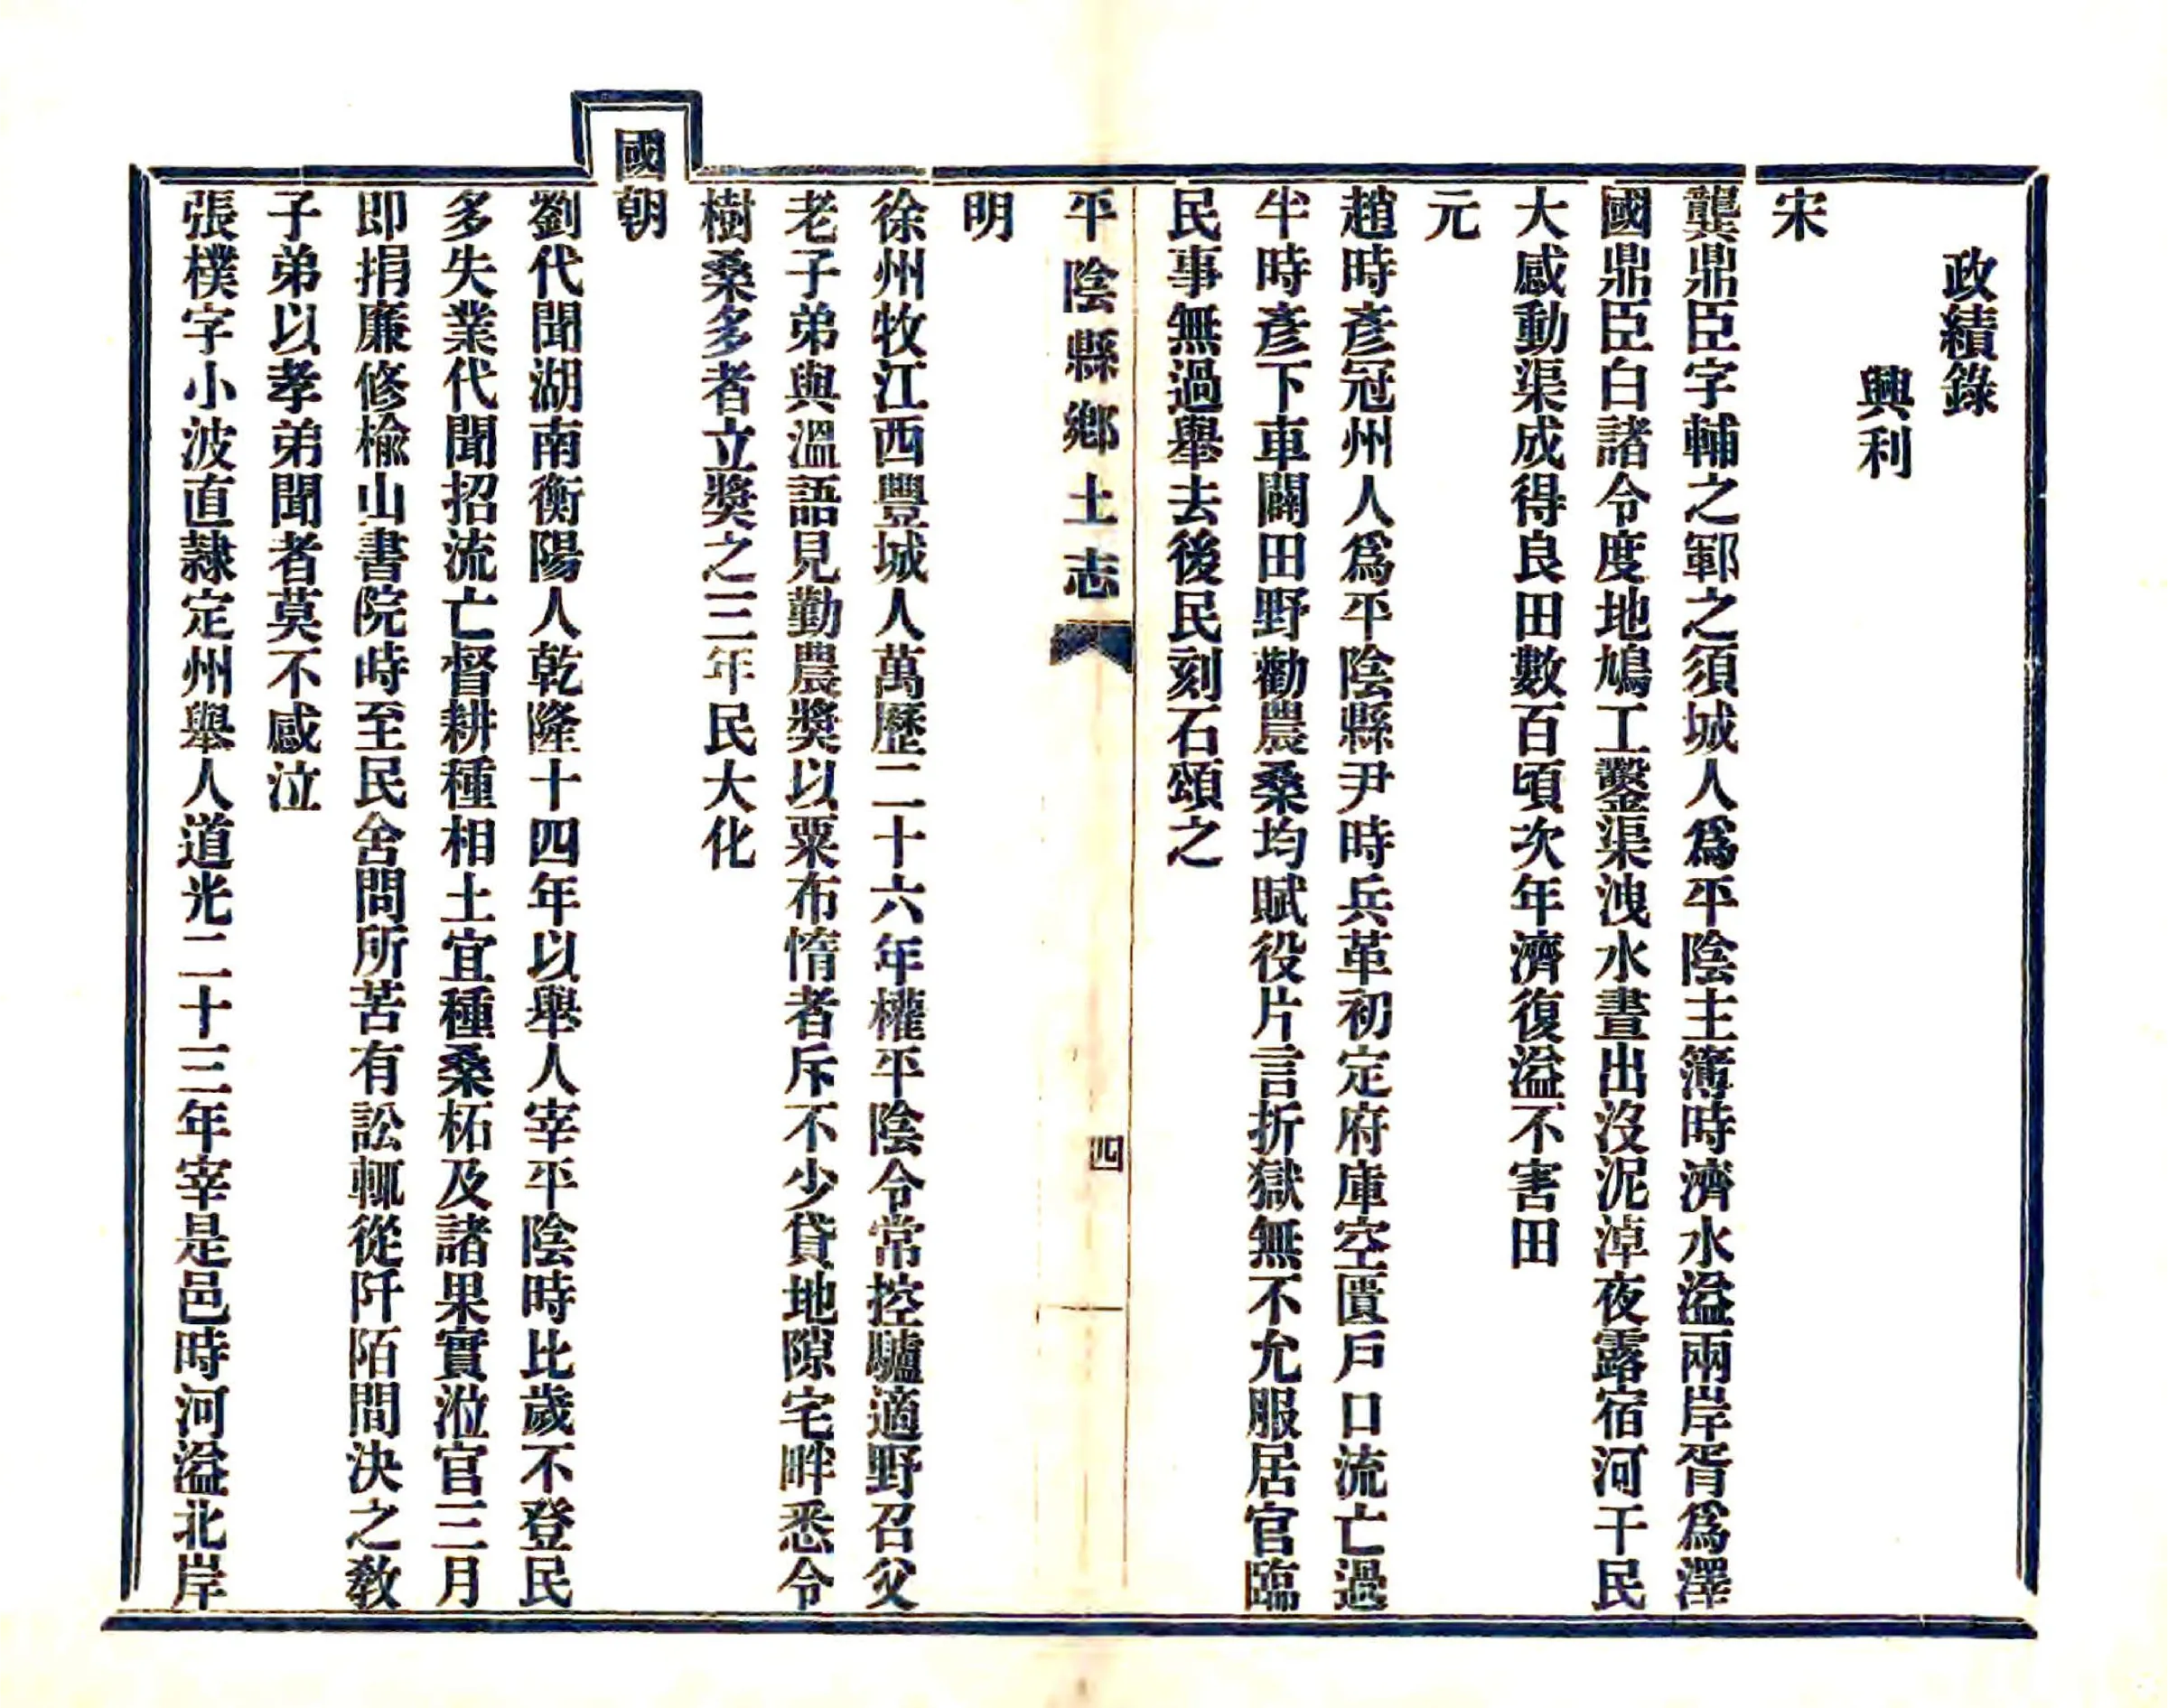 政績錄
興利
宋
龔鼎臣字輔之鄆之須城人爲平陰主簿時濟水溢兩岸胥爲澤
國鼎臣白諸令度地鳩工鑿渠洩水晝出沒泥淖夜露宿河干民
大感動渠成得良田數百頃次年濟復溢不害田
元
趙時彥冠州人爲平陰縣尹時兵革初定府庫空匱戶口流亡過
半時彥下車闢田野勸農桑均賦役片言折獄無不允服居官臨
民事無過舉去後民刻石頌之
平陰縣鄉土志
四
明
徐州牧江西豐城人萬歷二十六年權平陰令常控驢適野召父
老子弟與溫語見勤農獎以粟布惰者斥不少貸地隙宅畔悉令
樹桑多者立獎之三年民大化
國朝
劉代聞湖南衡陽人乾隆十四年以舉人宰平陰時比歲不登民
多失業代聞招流亡督耕種相土宜種桑柘及諸果實涖官三月
即捐廉修榆山書院時至民舍問所苦有訟輒從阡陌間決之教
子弟以孝弟聞者莫不感泣
張樸字小波直隸定州舉人道光二十三年宰是邑時河溢北岸